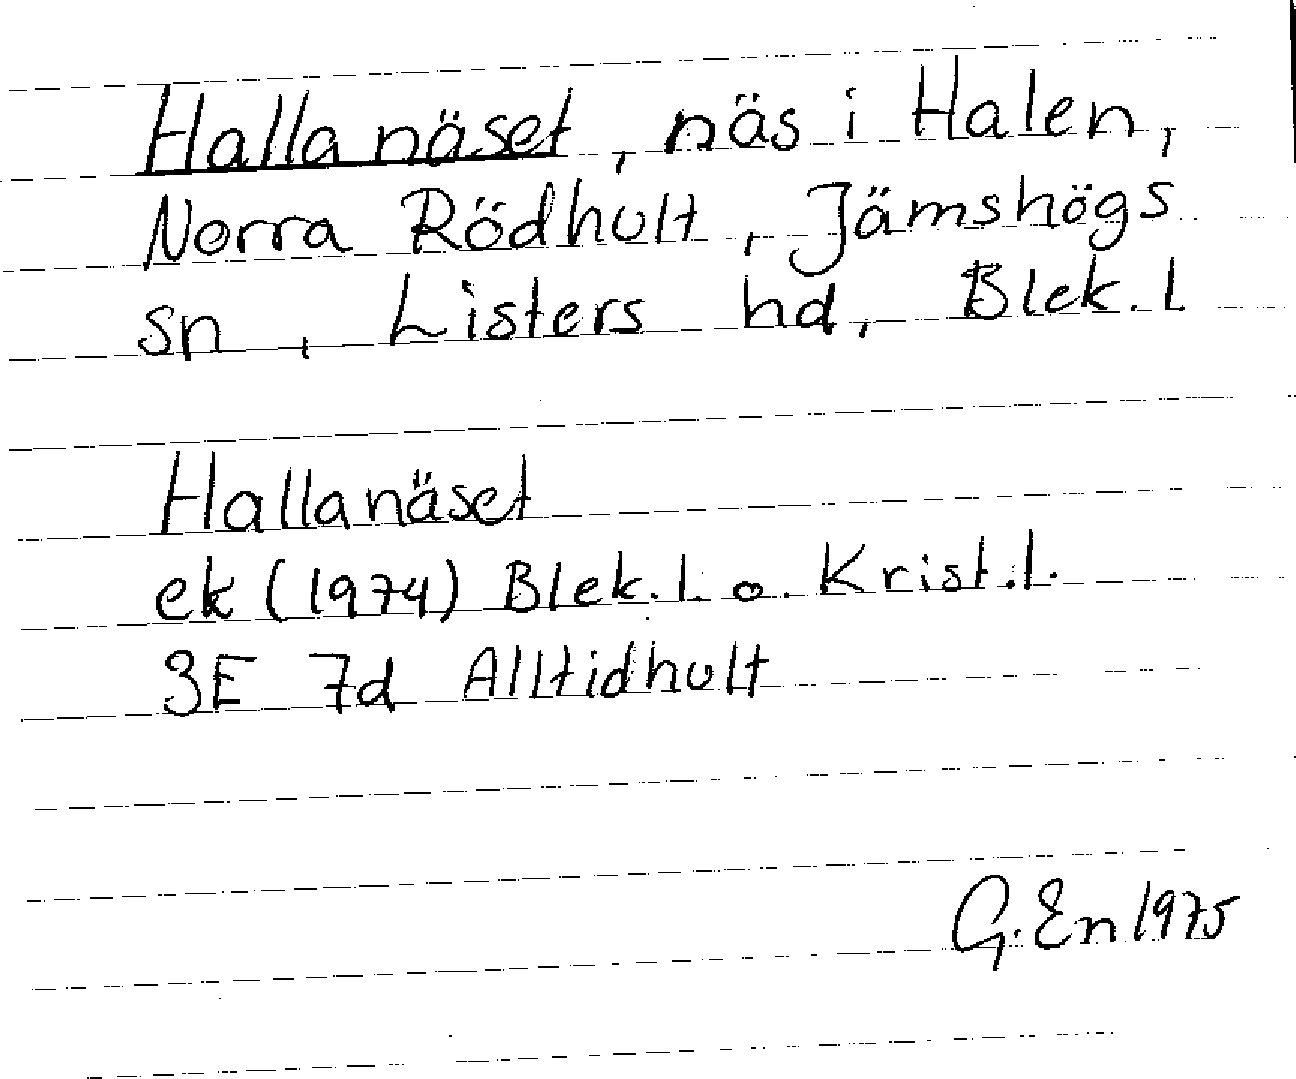 Hallanäset, näs i Halen,
Norra Rödhult, Jämshögs
sn, Listers hd, Blek. l
Hallanäset
ek (1974) Blek. l. o. Krist. l.
3E 7d Alltidhult
G. En 1975